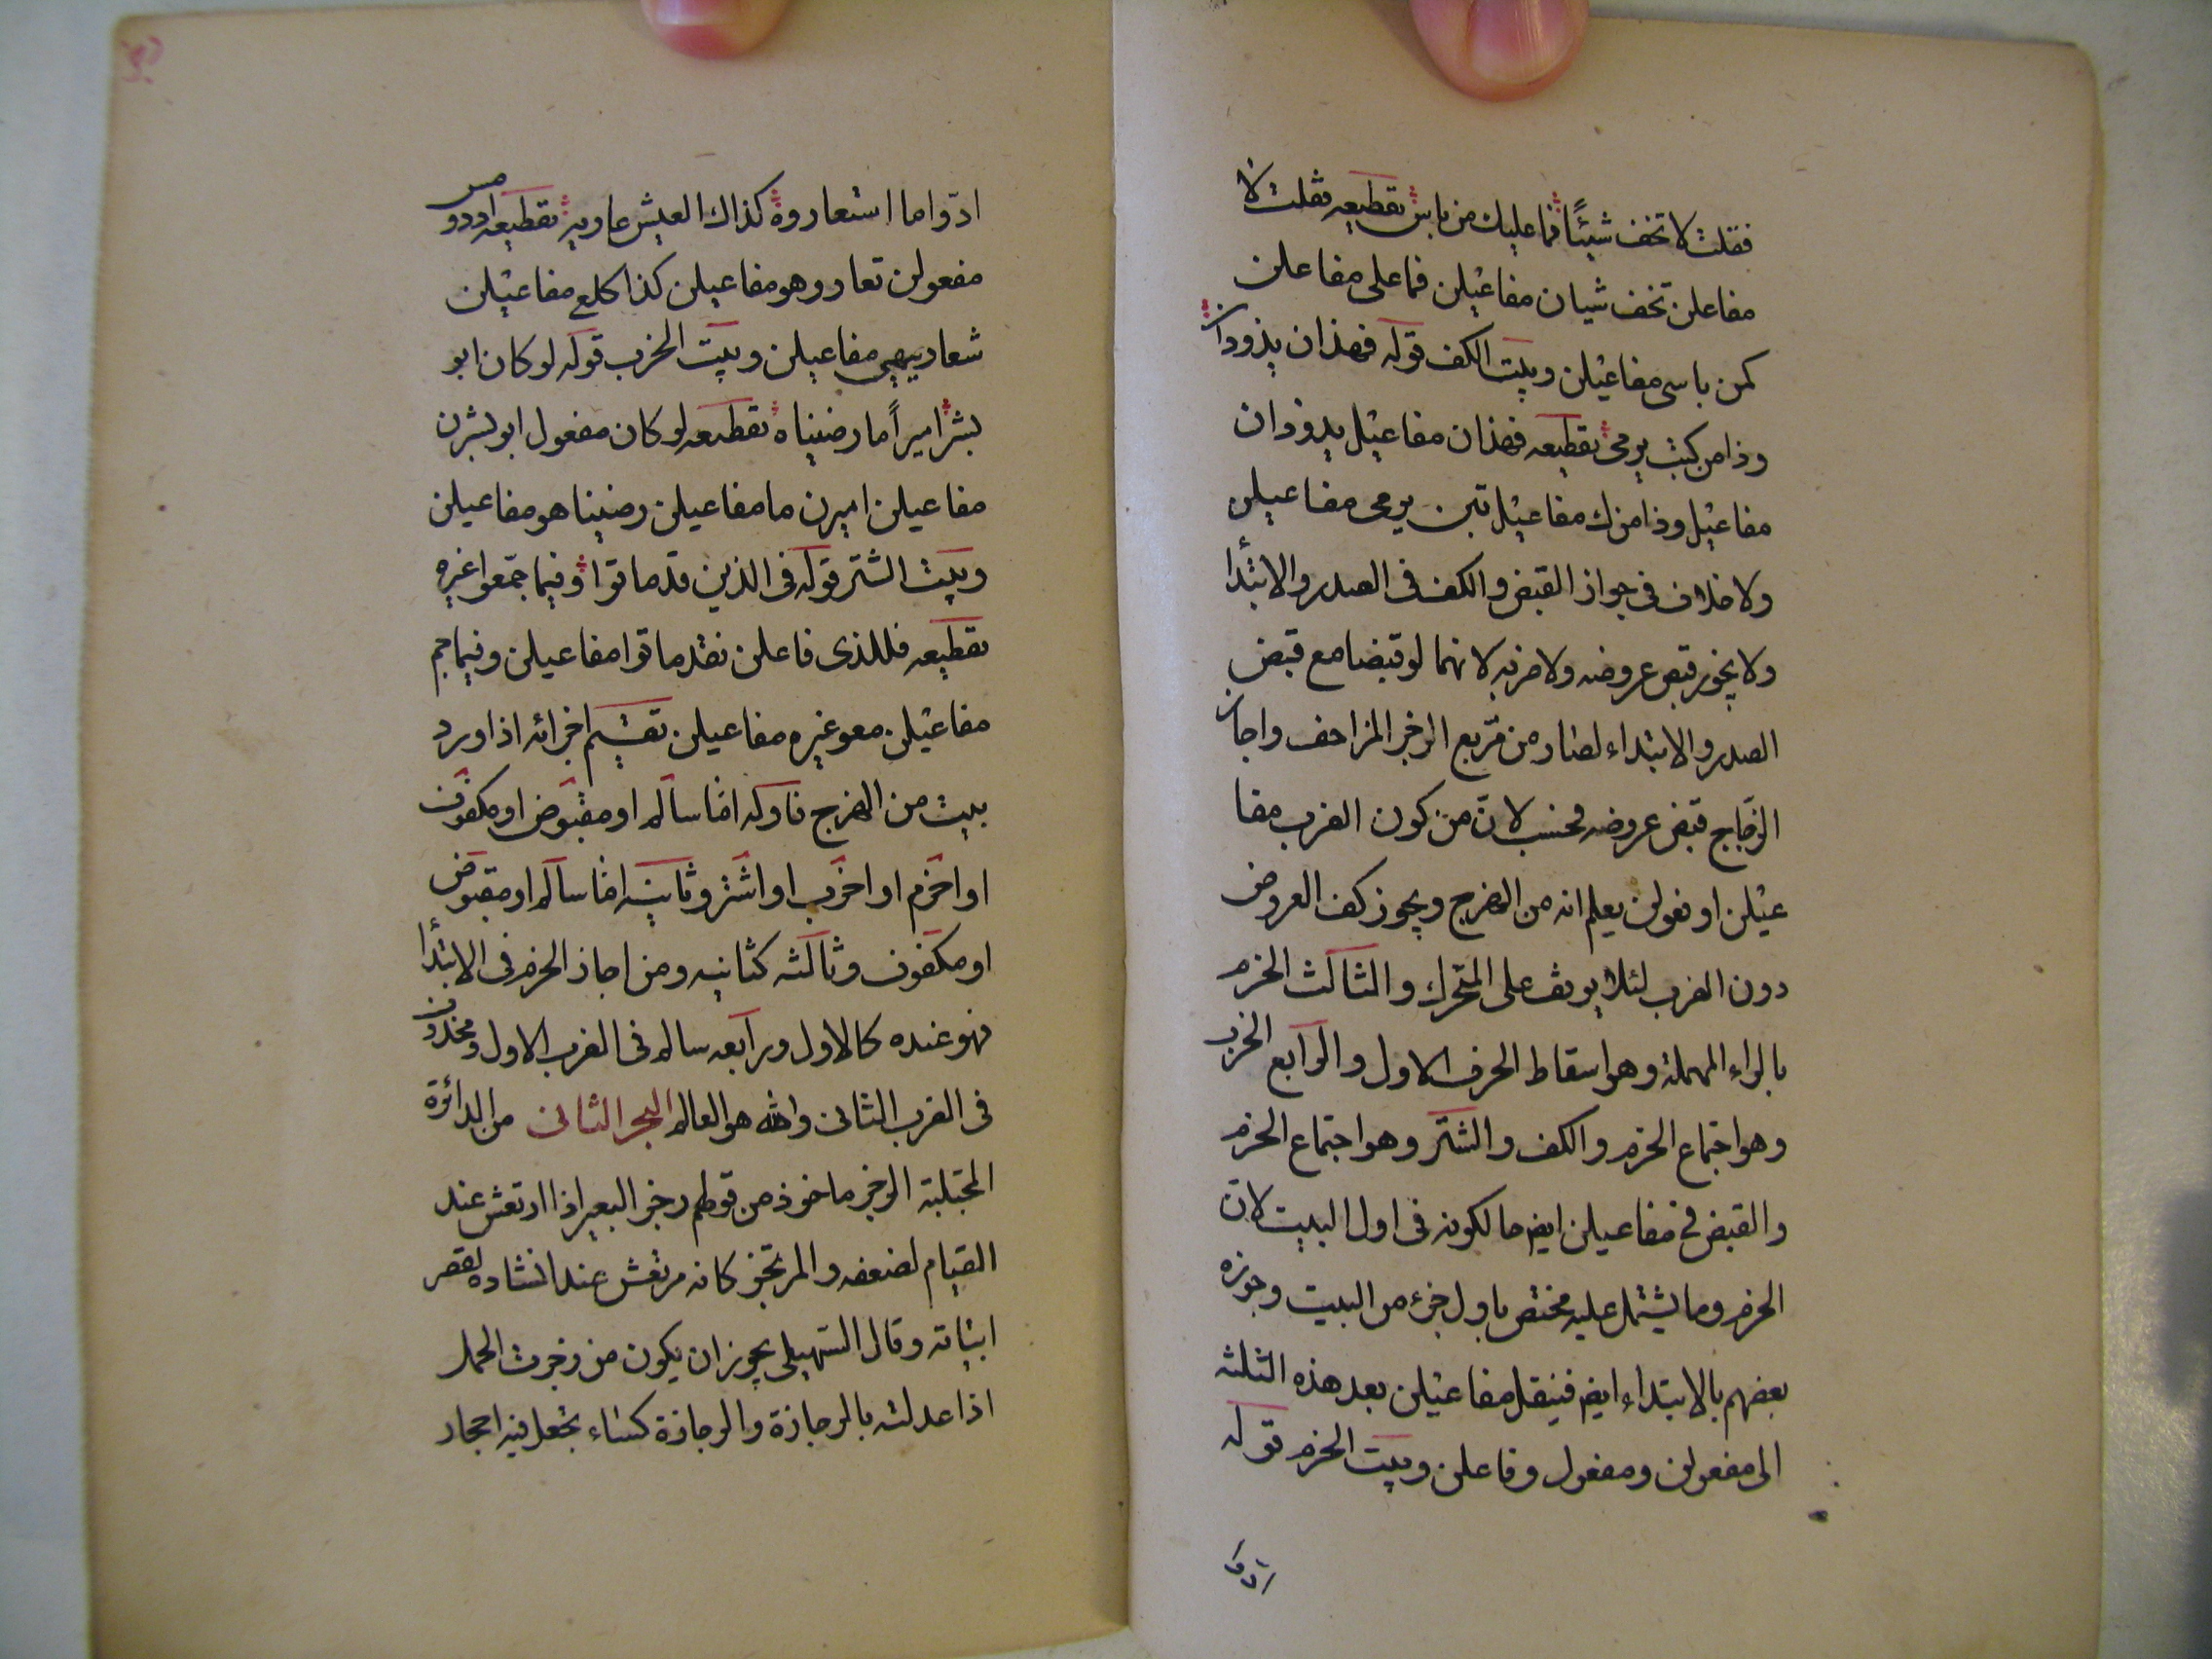 فقلت لا تخف شيئًا فما عليك من باس تقطيعه فقلت لا
مفاعلن تخف شيان مفاعيلن فما على مفاعلن
كمن باسى مفاعيلن وبيت الكف قوله فهذان يذودان
وذا من كثب يرمى تقطيعه فهذان مفاعيل يذودان
مفاعيل وذا من ك مفاعيل ثبن يرمى مفاعيلن
ولا خلاف فى جواز القبض والكف فى الصدر والابتدأ
ولا يجوز قبض عروضه ولا ضربه لانهما لو قبضا مع قبض
الصدر والابتداء لصار من مربع الرجز المزاحف واجاز
الزجّاج قبض عروضه فحسب لانّ من كون الضرب مفا
عيلن او فعولن يعلم انه من الهزج ويجوز كف العروض
دون الضرب لئلا يوقف على المتحرك والثالث الخرم
بالراء المهملة وهو اسقاط الحرف الاول والرابع الخرب
وهو اجتماع الخرم والكف والشتر وهو اجتماع الخرم
والقبض فى مفاعيلن ايضا حالكونه فى اول البيت لانّ
الخرم وما يشتمل عليه مختص باول جزء من البيت وجوزه
بعضهم بالابتداء ايضا فينقل مفاعيلن بعد هذه الثلثة
الى مفعولن ومفعول وفاعلن وبيت الخرم قوله
ادّوا
ادّوا ما استعاروه كذاك العيش عاريه تقطيعه اددو مس
مفعولن تعاروهو مفاعيلن كذا كلع مفاعيلن
شعارييهى مفاعيلن وبيت الخرب قوله لو كان ابو
بشر اميرًا ما رضيناه تقطيعه لو كان مفعول ابو بشرن
مفاعيلن اميرن ما مفاعيلن رضيناهو مفاعيلن
وبيت الشتر قوله فى الذين قد ماتوا وفيما جمّعوا عبره
تقطيعه فللذى فاعلن نقد ماتوا مفاعيلن وفيما جم
مفاعيلن معو عبره مفاعيلن تقسيم اجزائه اذا ورد
بيت من الهزج فاوله امّا سالم او مقبوض او مكفوف
او اخرم او اخرب او اشتر وثانيه امّا سالم او مقبوض
او مكفوف وثالثه كثانيه ومن اجاز الخرم فى الابتدأ
فهو عنده كالاول ورابعه سالم فى الضرب الاول ومحذوف
فى الضرب الثانى والله هو العالم البحر الثانى من الدائرة
المجتلبة الرجز ماخوذ من قولهم رجز البعير اذا ارتعش عند
القيام لضعفه والمرتجز كانه مرتعش عند انشاده لقصر
ابياته وقال السهيلى يجوز ان يكون من رجزت الحمل
اذا عدلته بالرجازة والرجازة كساء يجعل فيه احجار